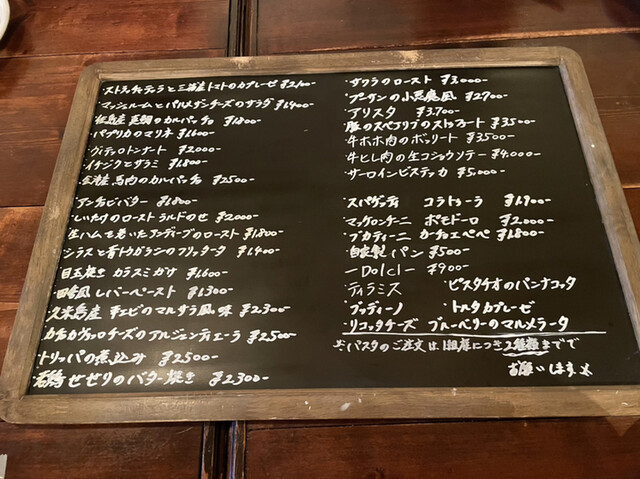 ・ストラッチャテッラと三浦産トマトのカプレーゼ ¥2,100-
・マッシュルームとパルメザンチーズのサラダ ¥1,400-
真鯛のカルパッチョ ¥1,800-
・パプリカのマリネ ¥1,600-
・ヴィテッロトンナート ¥2,000-
・イチジクとサラミ ¥1,800-
馬肉のカルパッチョ ¥2,500-
・アンチョビバター ¥1,800-
・しいたけのロースト ラルドのせ ¥2,000-
・生ハムを巻いたアンディーブのロースト ¥1,800-
・シラスと青トウガラシのフリッタータ ¥1,400-
・目玉焼き カラスミがけ ¥1,600-
・田舎風レバーペースト ¥1,300-
・久米島産 車エビのマルサラ風味 ¥2,300-
・カチョカヴァッロチーズのアルジェンティエーラ ¥2,500-
・トリッパの煮込み ¥2,500-
せせりのバター焼き ¥2,300-
・サワラのロースト ¥3,000-
・プーサンの小悪魔風 ¥2,700-
・アリスタ ¥3,700-
・豚のスペアリブのストゥファート ¥3,500-
・牛ホホ肉のボッリート ¥3,500-
・牛ヒレ肉の生コショウソテー ¥4,000-
・サーロインビステッカ ¥5,000-
・スパゲッティ コラトゥーラ ¥1,900-
・マッケローニ ポモドーロ ¥2,000-
・ブカティーニ カーチョエペペ ¥1,800-
・自家製パン ¥500-
-Dolci- ¥900-
・ティラミス ・ピスタチオのパンナコッタ
・ブッディーノ ・トルタカプレーゼ
・リコッタチーズ ブルーベリーのマルメラータ
※パスタのご注文は1組様につき2種類までで
お願いします